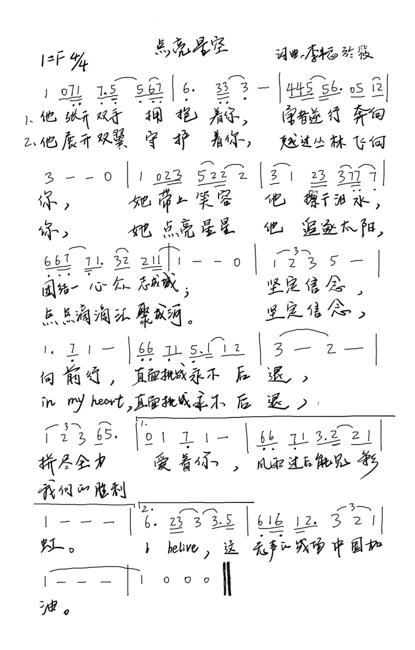 点亮星空
1=F 4/4
1 071 7.5 567 | 6. 33 3 — | 445 56. 05 12 |
1. 他 张开 双手 拥 抱 着你, 逆行 奔向
2. 他 展开 双翼 守 护 着你, 越过 丛林 飞向
3 - - 0 | 1 023 522 2 | 3 1 23 377 7 |
你, 她 带上 笑容 他 擦干 泪水,
你, 她 点亮 星星 他 追逐 太阳,
667 71. 32 211 | 1 - - 0 | 1 2 3 5 - |
团结一心 众 志成城; 坚定信念,
点点滴滴让 聚成河。 坚定信念,
1. 7 1 - | 66 71 5.1 1 2 | 3 — 2 — |
向 前行, 直面挑战永不 后 退,
in my heart, 直面挑战永不 后 退,
1 2 3 3 65. | 1. 0 1 7 1 - | 66 71 3.2 2 1 |
拼尽全力 爱着你, 风雨过后能见 彩
我们的胜利
1 - - - | 2. 6. 23 3 3.5 | 616 12. 3 3 2 1 |
虹。 I belive, 这 无声的战场 中国加
1 - - - | 1 0 0 0 ‖
油。